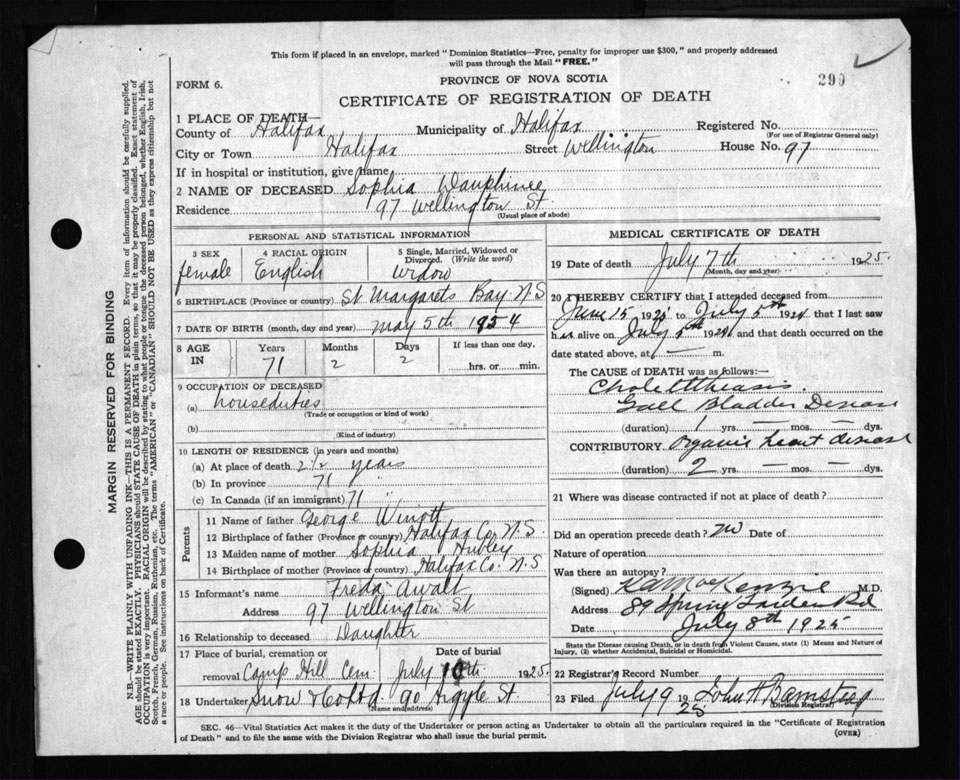 This form if placed in an envelope, marked "Dominion Statistics—Free, penalty for improper use $300," and properly addressed
will pass through the Mail "FREE."
299
FORM 6.
PROVINCE OF NOVA SCOTIA
CERTIFICATE OF REGISTRATION OF DEATH
1 PLACE OF DEATH—
County of Halifax Municipality of Halifax Registered No.
(For use of Registrar General only)
City or Town Halifax Street Wellington House No. 97
If in hospital or institution, give name
2 NAME OF DECEASED Sophia Dauphinee
Residence 97 Wellington St
(Usual place of abode)
PERSONAL AND STATISTICAL INFORMATION
3 SEX female
4 RACIAL ORIGIN English
5 Single, Married, Widowed or Divorced. (Write the word) widow
6 BIRTHPLACE (Province or country) St. Margarets Bay N.S
7 DATE OF BIRTH (month, day and year) May 5th 1954
8 AGE IN Years 71 Months 2 Days 2 If less than one day, hrs. or min.
9 OCCUPATION OF DECEASED
(a) houseduties
(Trade or occupation or kind of work)
(b)
(Kind of industry)
10 LENGTH OF RESIDENCE (in years and months)
(a) At place of death 2½ years
(b) In province 71 "
(c) In Canada (if an immigrant) 71 "
Parents
11 Name of father George
12 Birthplace of father (Province or country) Halifax Co. N.S.
13 Maiden name of mother Sophia Hubley
14 Birthplace of mother (Province or country) Halifax Co. N.S
15 Informant's name Freda Awalt
Address 97 Wellington St
16 Relationship to deceased Daughter
17 Place of burial, cremation or removal Camp Hill Cem. Date of burial July 10th 1925
18 Undertaker Snow & Co Ltd 90 Argyle St.
(Name and address)
MEDICAL CERTIFICATE OF DEATH
19 Date of death July 7th 1925.
(Month, day and year)
20 I HEREBY CERTIFY that I attended deceased from
June 15 1925 to July 5th 1924 that I last saw
h er alive on July 5th 1924 and that death occurred on the
date stated above, at — m.
The CAUSE of DEATH was as follows:—
Gall Bladder Disease
(duration) 1 yrs. — mos. — dys.
CONTRIBUTORY. Organic heart disease
(duration) 2 yrs. — mos. — dys.
21 Where was disease contracted if not at place of death?
Did an operation precede death? no Date of
Nature of operation
Was there an autopsy?
(Signed) MacKenzie M.D.
Address 89 Spring Garden Rd
Date July 8th 1925
State the Disease causing Death, or in death from Violent Causes, state (1) Means and Nature of
Injury, (2) whether Accidental, Suicidal or Homicidal.
22 Registrar's Record Number
23 Filed July 9 1925 John H Barnstead
(Division Registrar)
SEC. 46—Vital Statistics Act makes it the duty of the Undertaker or person acting as Undertaker to obtain all the particulars required in the "Certificate of Registration
of Death" and to file the same with the Division Registrar who shall issue the burial permit.
(OVER)
MARGIN RESERVED FOR BINDING
N.B.—WRITE PLAINLY WITH UNFADING INK—THIS IS A PERMANENT RECORD. Every item of information should be carefully supplied.
AGE should be stated EXACTLY. PHYSICIANS should STATE CAUSE OF DEATH in plain terms, so that it may be properly classified. Exact statement of
OCCUPATION is very important. RACIAL ORIGIN will be described by stating to what people or tongue the deceased person belonged, whether English, Irish,
Scotch, French, German, Russian, Ruthenian, etc. The terms "AMERICAN" or "CANADIAN" SHOULD NOT BE USED as they express citizenship but not
a race or people. See instructions on back of Certificate.